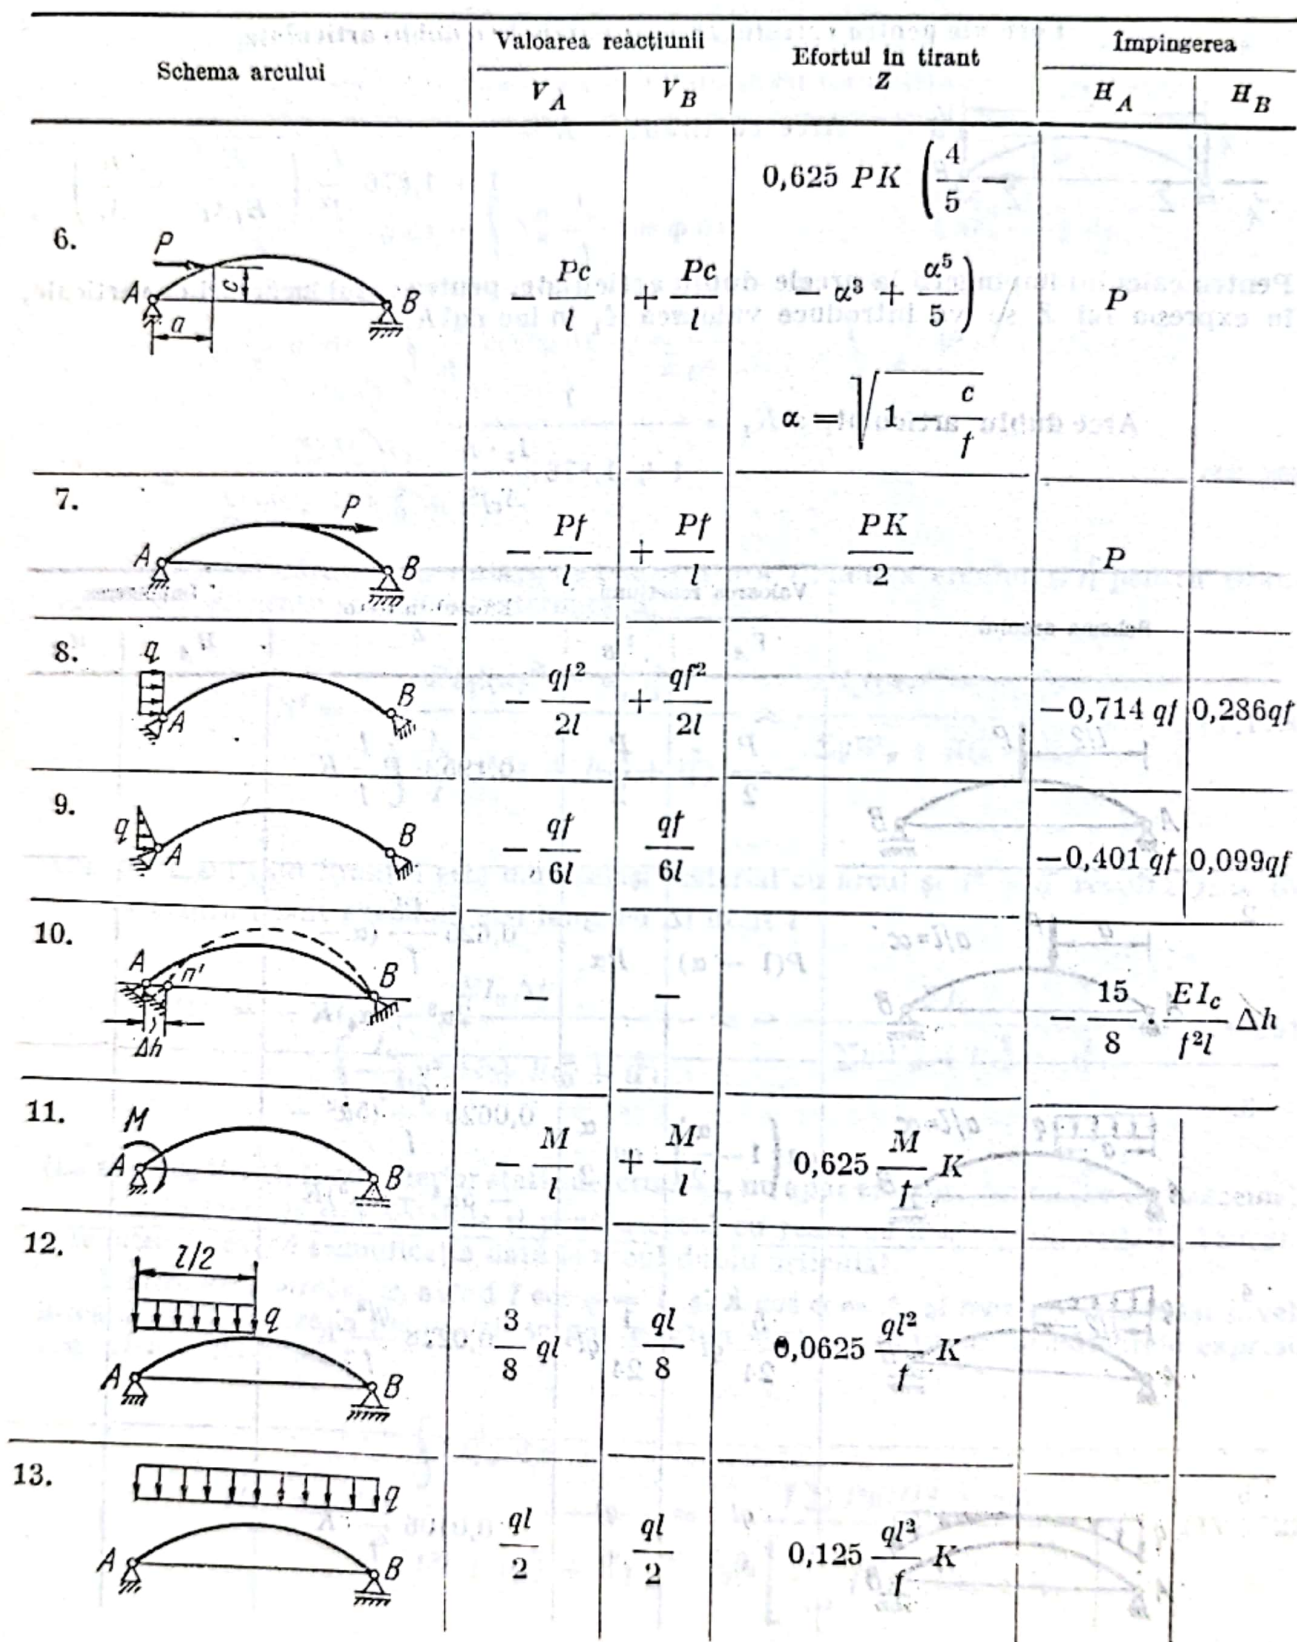 Schema arcului | Valoarea reacțiunii | Efortul în tirant Z | Împingerea
V_A | V_B | H_A | H_B
6. P A a c B | − Pc/l | + Pc/l | 0,625 PK (4/5 −
− α³ + α⁵/5) | P
α = √(1 − c/f)
7. A P B | − Pf/l | + Pf/l | PK/2 | P
8. q A B | − qf²/2l | + qf²/2l | −0,714 qf | 0,286qf
9. q A B | − qf/6l | qf/6l | −0,401 qf | 0,099qf
10. A B Δh | − | − | − 15/8 · EI_c/f²l Δh
11. M A B | − M/l | + M/l | 0,625 M/f K
12. l/2 q A B | 3/8 ql | ql/8 | 0,0625 ql²/f K
13. q A B | ql/2 | ql/2 | 0,125 ql²/f K